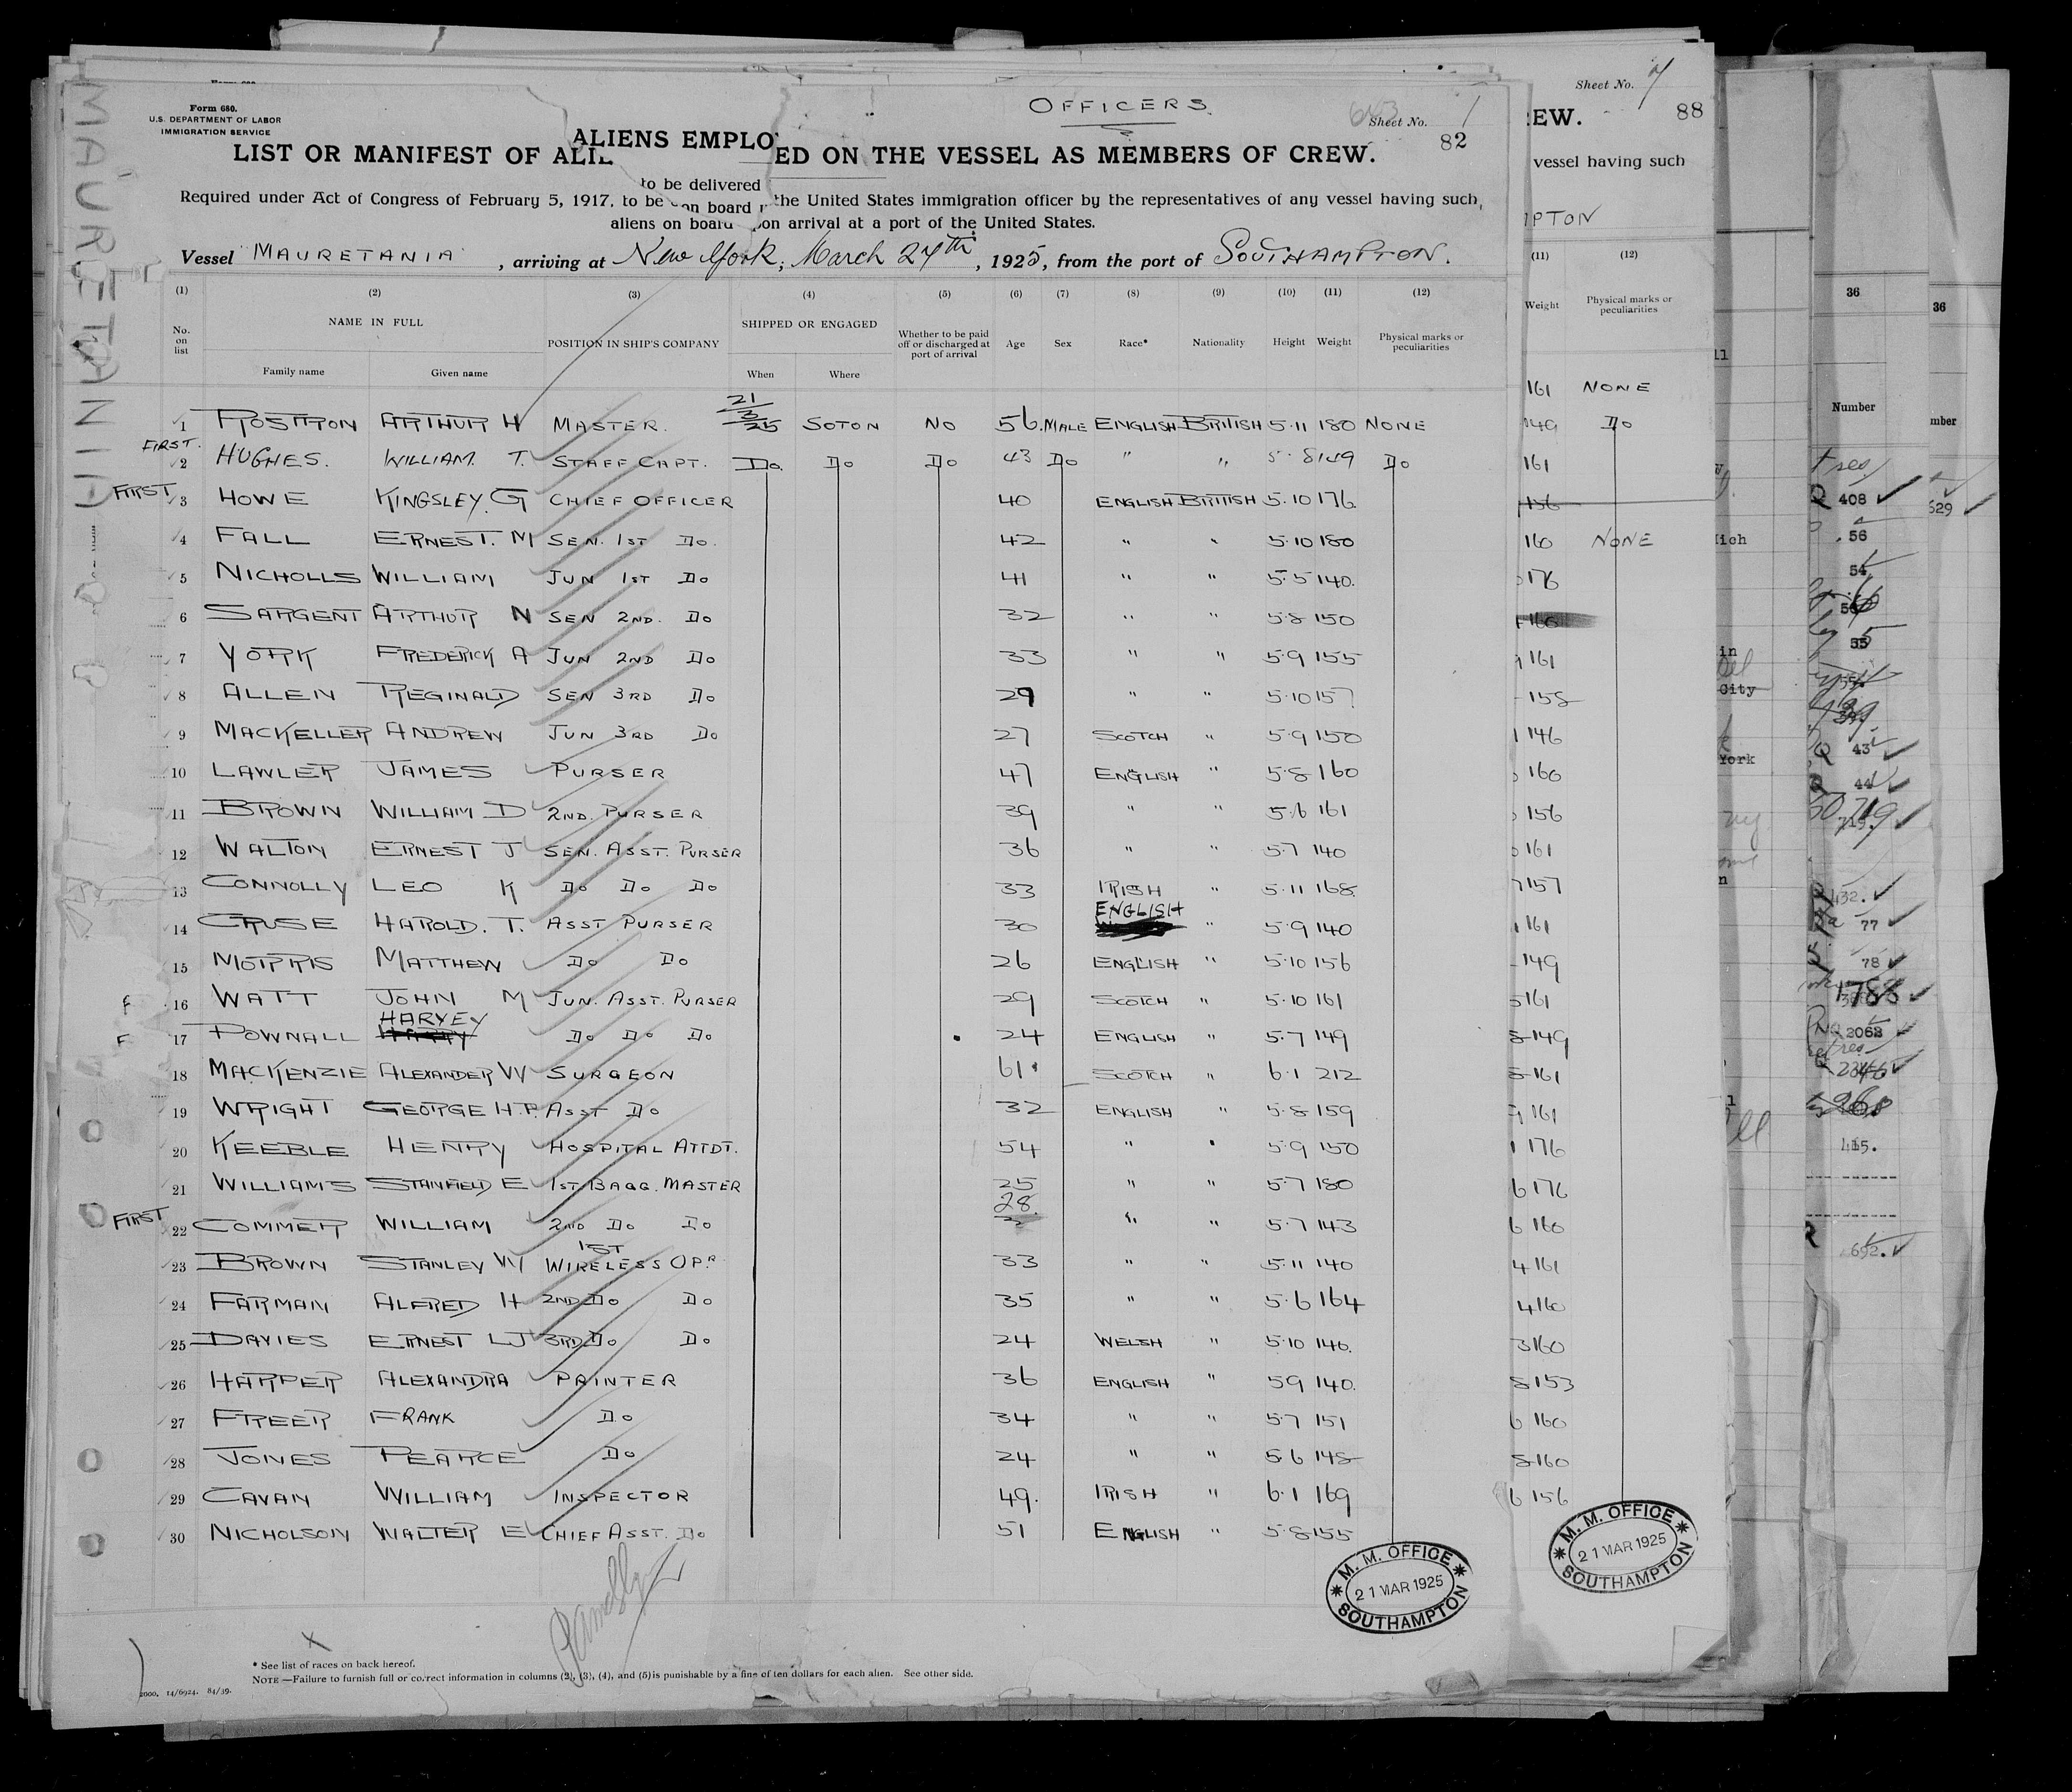 MAURETANIA
Form 680.
U.S. DEPARTMENT OF LABOR
IMMIGRATION SERVICE
OFFICERS
Sheet No. 1
82
ALIENS EMPLO
LIST OR MANIFEST OF ALIE ED ON THE VESSEL AS MEMBERS OF CREW.
to be delivered
Required under Act of Congress of February 5, 1917, to be on board the United States immigration officer by the representatives of any vessel having such
aliens on board upon arrival at a port of the United States.
Vessel MAURETANIA, arriving at New York, March 27th, 1925, from the port of SOUTHAMPTON.
(1) (2) (3) (4) (5) (6) (7) (8) (9) (10) (11) (12)
No. on list NAME IN FULL POSITION IN SHIP'S COMPANY SHIPPED OR ENGAGED Whether to be paid off or discharged at port of arrival Age Sex Race* Nationality Height Weight Physical marks or peculiarities
Family name Given name When Where
1 ROSTRON ARTHUR H MASTER. 21/3/25 SOTON NO 56. MALE ENGLISH BRITISH 5.11 180 NONE
FIRST. 2 HUGHES. WILLIAM. T. STAFF CAPT. Do. Do Do 43 Do " " 5.8 149 Do
FIRST 3 HOWE KINGSLEY. G CHIEF OFFICER 40 ENGLISH BRITISH 5.10 176
4 FALL ERNEST. M SEN. 1ST Do. 42 " " 5.10 180
5 NICHOLLS WILLIAM JUN 1ST Do 41 " " 5.5 140.
6 SARGENT ARTHUR N SEN 2ND. Do 32 " " 5.8 150
7 YORK FREDERICK A JUN 2ND Do 33 " " 5.9 155
8 ALLEN REGINALD SEN 3RD Do 29 " " 5.10 157
9 MACKELLER ANDREW JUN 3RD Do 27 SCOTCH " 5.9 150
10 LAWLER JAMES PURSER 47 ENGLISH " 5.8 160
11 BROWN WILLIAM D 2ND. PURSER 39 " " 5.6 161
12 WALTON ERNEST J SEN. ASST. PURSER 36 " " 5.7 140
13 CONNOLLY LEO K Do Do Do 33 IRISH " 5.11 168
14 CRUSE HAROLD. T. ASST PURSER 30 ENGLISH " 5.9 140
15 MORRIS MATTHEW Do Do 26 ENGLISH " 5.10 156
F 16 WATT JOHN M JUN. ASST. PURSER 29 SCOTCH " 5.10 161
F 17 POWNALL HARVEY Do Do Do 24 ENGLISH " 5.7 149
18 MACKENZIE ALEXANDER W SURGEON 61 SCOTCH " 6.1 212
19 WRIGHT GEORGE H.P. ASST Do 32 ENGLISH " 5.8 159
20 KEEBLE HENRY HOSPITAL ATTDT. 54 " " 5.9 150
21 WILLIAMS STANFIELD E 1ST BAGG. MASTER 25 " " 5.7 180
FIRST 22 COMMER WILLIAM 2ND Do Do 28 " " 5.7 143
23 BROWN STANLEY W 1ST WIRELESS OPR. 33 " " 5.11 140
24 FARMAN ALFRED H 2ND Do Do 35 " " 5.6 164
25 DAVIES ERNEST LJ 3RD Do Do 24 WELSH " 5.10 146.
26 HARPER ALEXANDRA PAINTER 36 ENGLISH " 59 140.
27 FREER FRANK Do 34 " " 5.7 151
28 JONES PEARCE Do 24 " " 5.6 148
29 CAVAN WILLIAM INSPECTOR 49. IRISH " 6.1 169
30 NICHOLSON WALTER E CHIEF ASST. Do 51 ENGLISH " 5.8 155
M. M. OFFICE
21 MAR 1925
SOUTHAMPTON
* See list of races on back hereof.
NOTE—Failure to furnish full or correct information in columns (2), (3), (4), and (5) is punishable by a fine of ten dollars for each alien. See other side.
2000. 14/6924. 84/39.
Sheet No. 7
EW. 88
vessel having such
PTON
(11) (12)
Weight Physical marks or peculiarities
161 NONE
149 Do
161
156
160 NONE
176
161
158
146
160
156
161
157
161
149
161
149
161
161
176
176
160
161
160
160
153
160
160
156
M. M. OFFICE
21 MAR 1925
SOUTHAMPTON
36
Number
408
56
54
City
York
43
44
77
78
2068
415.
692.
36
mber
529